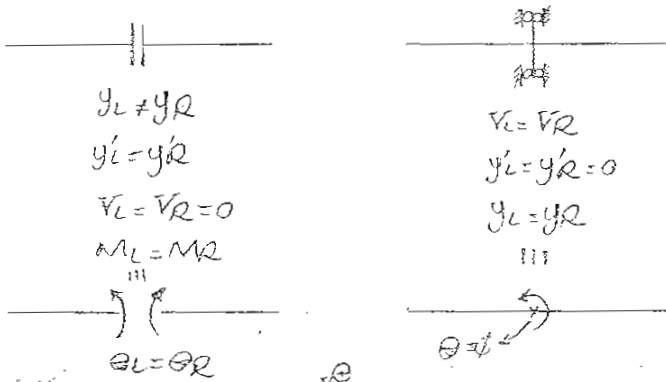 yL ≠ yR
y'L = y'R
VL = VR = 0
ML = MR
θL = θR
VL = VR
y'L = y'R = 0
yL = yR